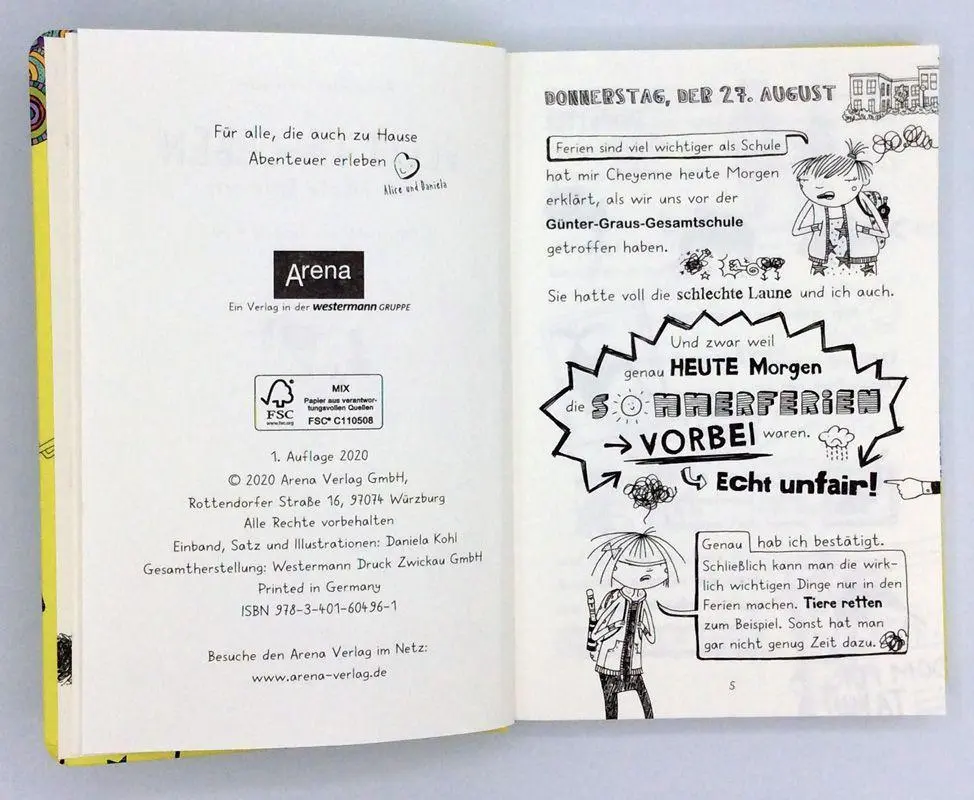 Für alle, die auch zu Hause
Abenteuer erleben
Alice und Daniela
Arena
Ein Verlag in der westermann GRUPPE
FSC
www.fsc.org
MIX
Papier aus verantwor-
tungsvollen Quellen
FSC® C110508
1. Auflage 2020
© 2020 Arena Verlag GmbH,
Rottendorfer Straße 16, 97074 Würzburg
Alle Rechte vorbehalten
Einband, Satz und Illustrationen: Daniela Kohl
Gesamtherstellung: Westermann Druck Zwickau GmbH
Printed in Germany
ISBN 978-3-401-60496-1
Besuche den Arena Verlag im Netz:
www.arena-verlag.de
DONNERSTAG, DER 27. AUGUST
Ferien sind viel wichtiger als Schule
hat mir Cheyenne heute Morgen
erklärt, als wir uns vor der
Günter-Graus-Gesamtschule
getroffen haben.
Sie hatte voll die schlechte Laune und ich auch.
Und zwar weil
genau HEUTE Morgen
die SOMMERFERIEN
VORBEI waren.
Echt unfair!
Genau hab ich bestätigt.
Schließlich kann man die wirk-
lich wichtigen Dinge nur in den
Ferien machen. Tiere retten
zum Beispiel. Sonst hat man
gar nicht genug Zeit dazu.
5